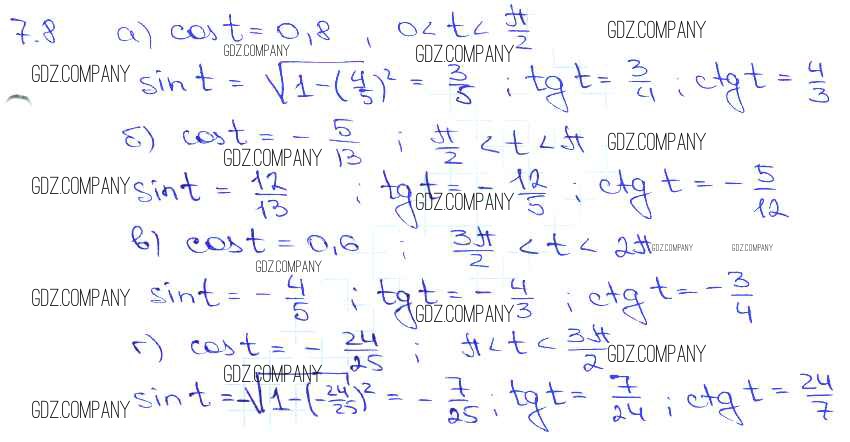 7.8 а) cos t = 0,8 , 0 < t < π/2 GDZ.COMPANY
GDZ.COMPANY GDZ.COMPANY
GDZ.COMPANY sin t = √(1-(4/5)²) = 3/5 ; tg t = 3/4 ; ctg t = 4/3
б) cos t = - 5/13 ; π/2 < t < π GDZ.COMPANY
GDZ.COMPANY
GDZ.COMPANY sin t = 12/13 ; tg t = - 12/5 ; ctg t = - 5/12
GDZ.COMPANY
в) cos t = 0,6 ; 3π/2 < t < 2π GDZ.COMPANY GDZ.COMPANY
GDZ.COMPANY
GDZ.COMPANY sin t = - 4/5 ; tg t = - 4/3 ; ctg t = - 3/4
GDZ.COMPANY
г) cos t = - 24/25 ; π < t < 3π/2 GDZ.COMPANY
GDZ.COMPANY
GDZ.COMPANY sin t = -√(1-(-24/25)²) = - 7/25 ; tg t = 7/24 ; ctg t = 24/7